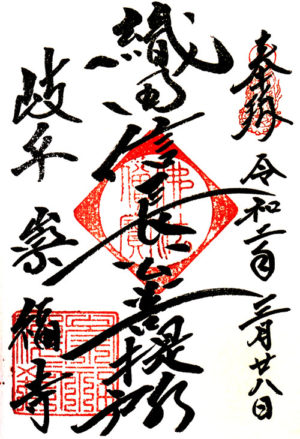 奉拝 令和二年 三月廿八日
織田信長公菩提所
佛法僧寶
岐阜 崇福寺